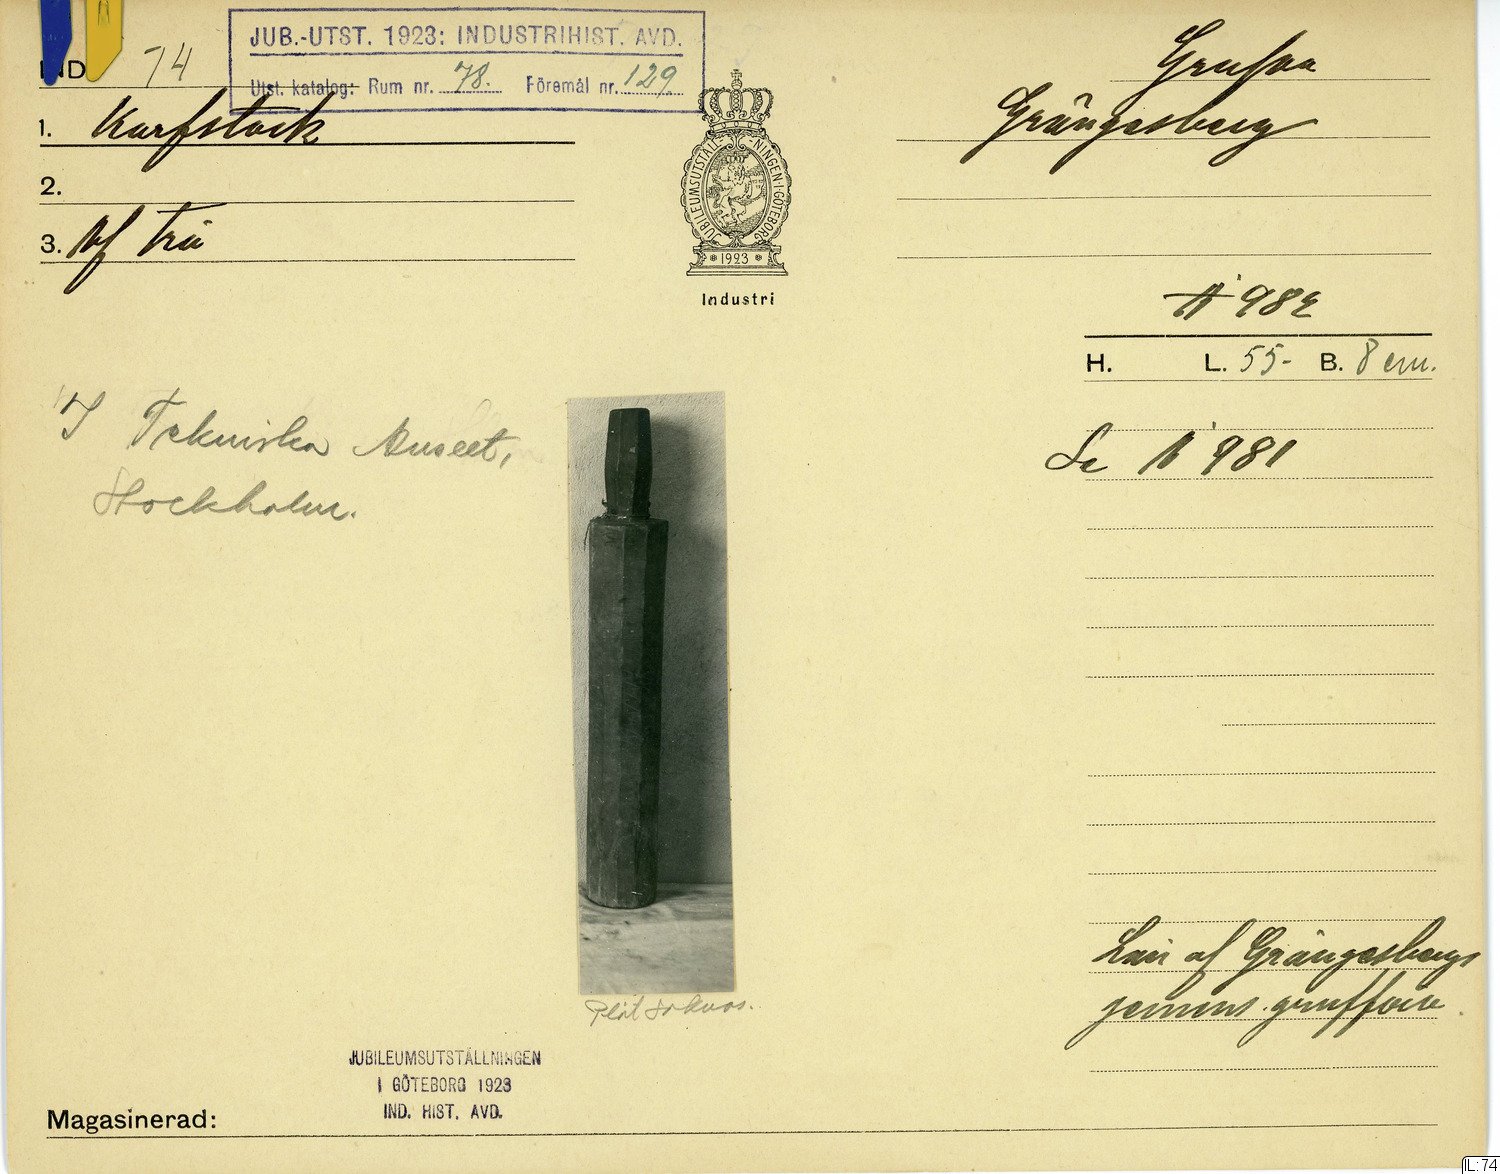 JUB.-UTST. 1923: INDUSTRIHIST. AVD.
Utst. katalog: Rum nr. 78. Föremål nr. 129
IND 74
1. Karfstock
2.
3. Af trä
JUBILEUMSUTSTÄLL-NINGEN·I·GÖTEBORG
1923
Industri
Grufva
Grängesberg
N 982
H. L. 55- B. 8 cm.
Se N 981
I Tekniska Museet,
Stockholm.
Plåt saknas.
Lån af Grängesbergs
gemens. grufförv.
JUBILEUMSUTSTÄLLNINGEN
I GÖTEBORG 1923
IND. HIST. AVD.
Magasinerad:
IL:74